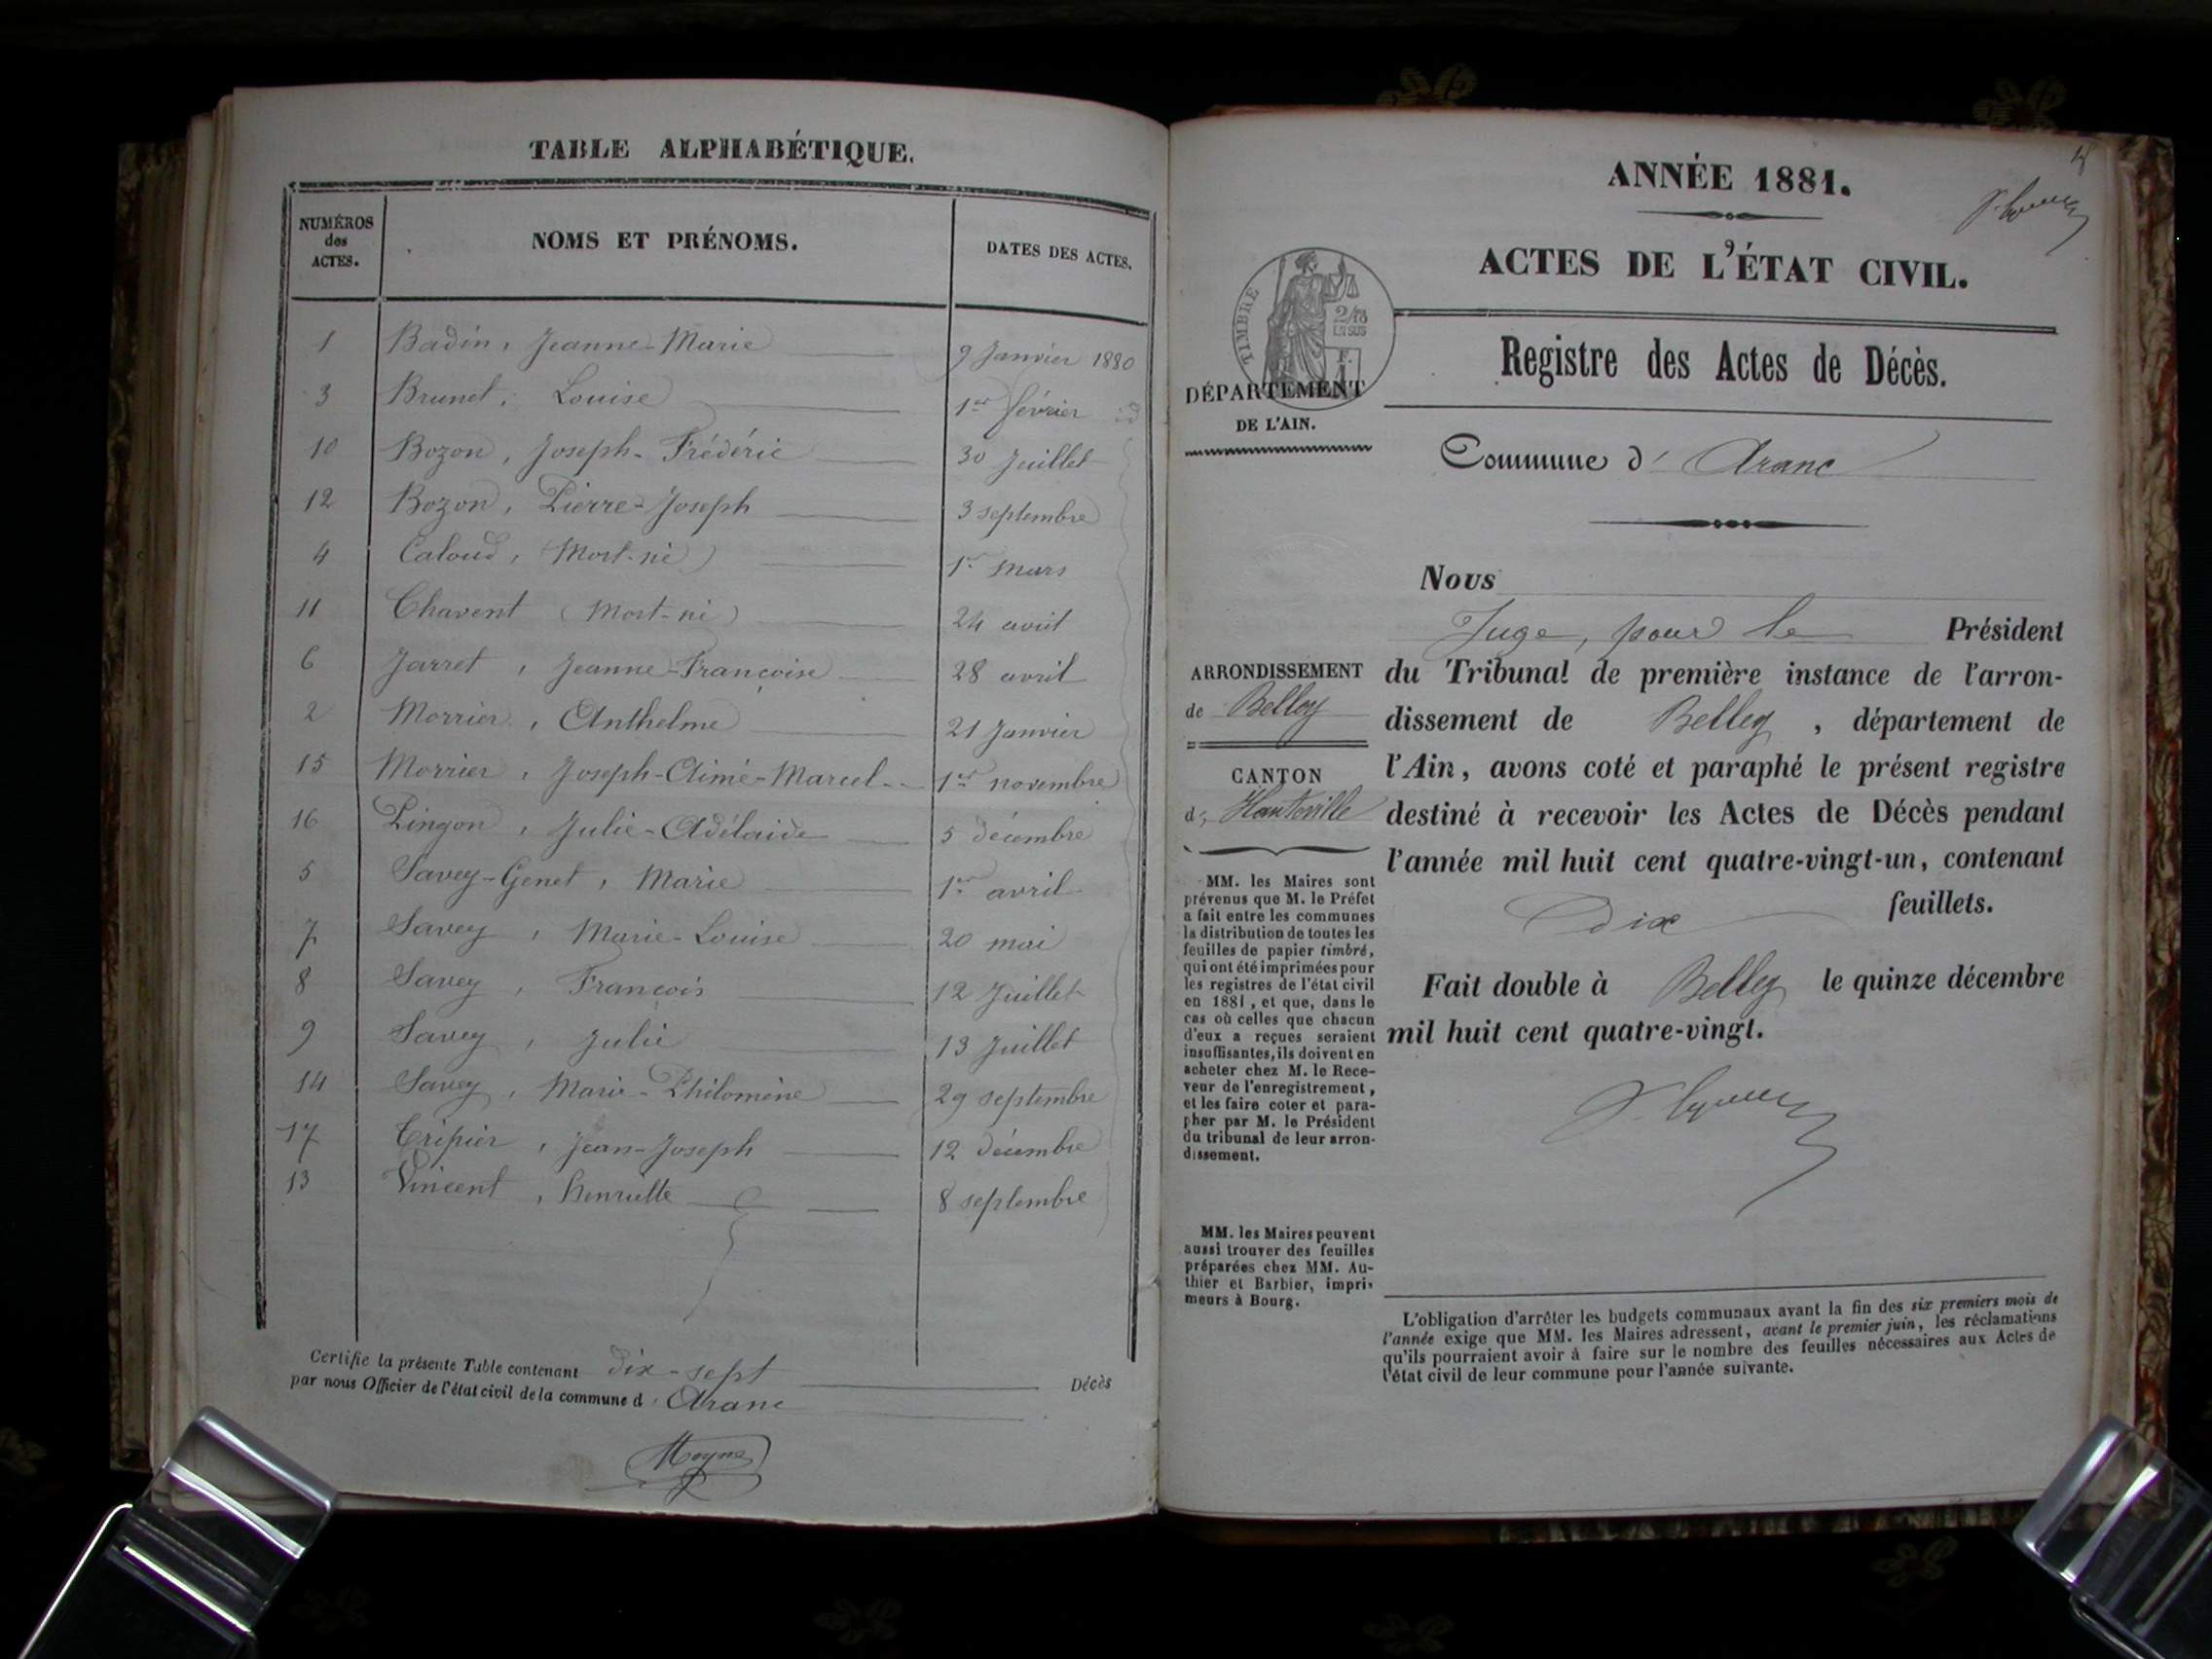 TABLE ALPHABÉTIQUE.
NUMÉROS des ACTES. NOMS ET PRÉNOMS. DATES DES ACTES.
1 Badin, Jeanne-Marie 9 Janvier 1880
3 Brunet, Louise 1er février id
10 Bozon, Joseph-Frédéric 30 Juillet
12 Bozon, Pierre-Joseph 3 septembre
4 Caloud, (Mort-né) 1er mars
11 Chavent (Mort-né) 24 août
6 Jarret, Jeanne-Françoise 28 avril
2 Morrier, Anthelme 21 Janvier
15 Morrier, Joseph-Aimé-Marcel 1er novembre
16 Pingon, Julie-Adélaïde 5 décembre
5 Savey-Genet, Marie 1er avril
7 Savey, Marie-Louise 20 mai
8 Savey, François 12 Juillet
9 Savey, Julie 13 Juillet
14 Savey, Marie-Philomène 29 septembre
17 Tripier, Jean-Joseph 12 décembre
13 Vincent, henriette 8 septembre
Certifié la présente Table contenant dix-sept Décès
par nous Officier de l'état civil de la commune d'Aranc
ANNÉE 1881.
ACTES DE L'ÉTAT CIVIL.
TIMBRE
2/10
EN SUS
Registre des Actes de Décès.
DÉPARTEMENT
DE L'AIN.
Commune d'Aranc
Nous
Juge, pour le Président
du Tribunal de première instance de l'arron-
dissement de Belley, département de
l'Ain, avons coté et paraphé le présent registre
destiné à recevoir les Actes de Décès pendant
l'année mil huit cent quatre-vingt-un, contenant
Dix feuillets.
Fait double à Belley le quinze décembre
mil huit cent quatre-vingt.
ARRONDISSEMENT
de Belley
CANTON
d Hauteville
MM. les Maires sont
prévenus que M. le Préfet
a fait entre les communes
la distribution de toutes les
feuilles de papier timbré,
qui ont été imprimées pour
les registres de l'état civil
en 1881, et que, dans le
cas où celles que chacun
d'eux a reçues seraient
insuffisantes, ils doivent en
acheter chez M. le Rece-
veur de l'enregistrement,
et les faire coter et para-
pher par M. le Président
du tribunal de leur arron-
dissement.
MM. les Maires peuvent
aussi trouver des feuilles
préparées chez MM. Au-
thier et Barbier, impri-
meurs à Bourg.
L'obligation d'arrêter les budgets communaux avant la fin des six premiers mois de
l'année exige que MM. les Maires adressent, avant le premier juin, les réclamations
qu'ils pourraient avoir à faire sur le nombre des feuilles nécessaires aux Actes de
l'état civil de leur commune pour l'année suivante.